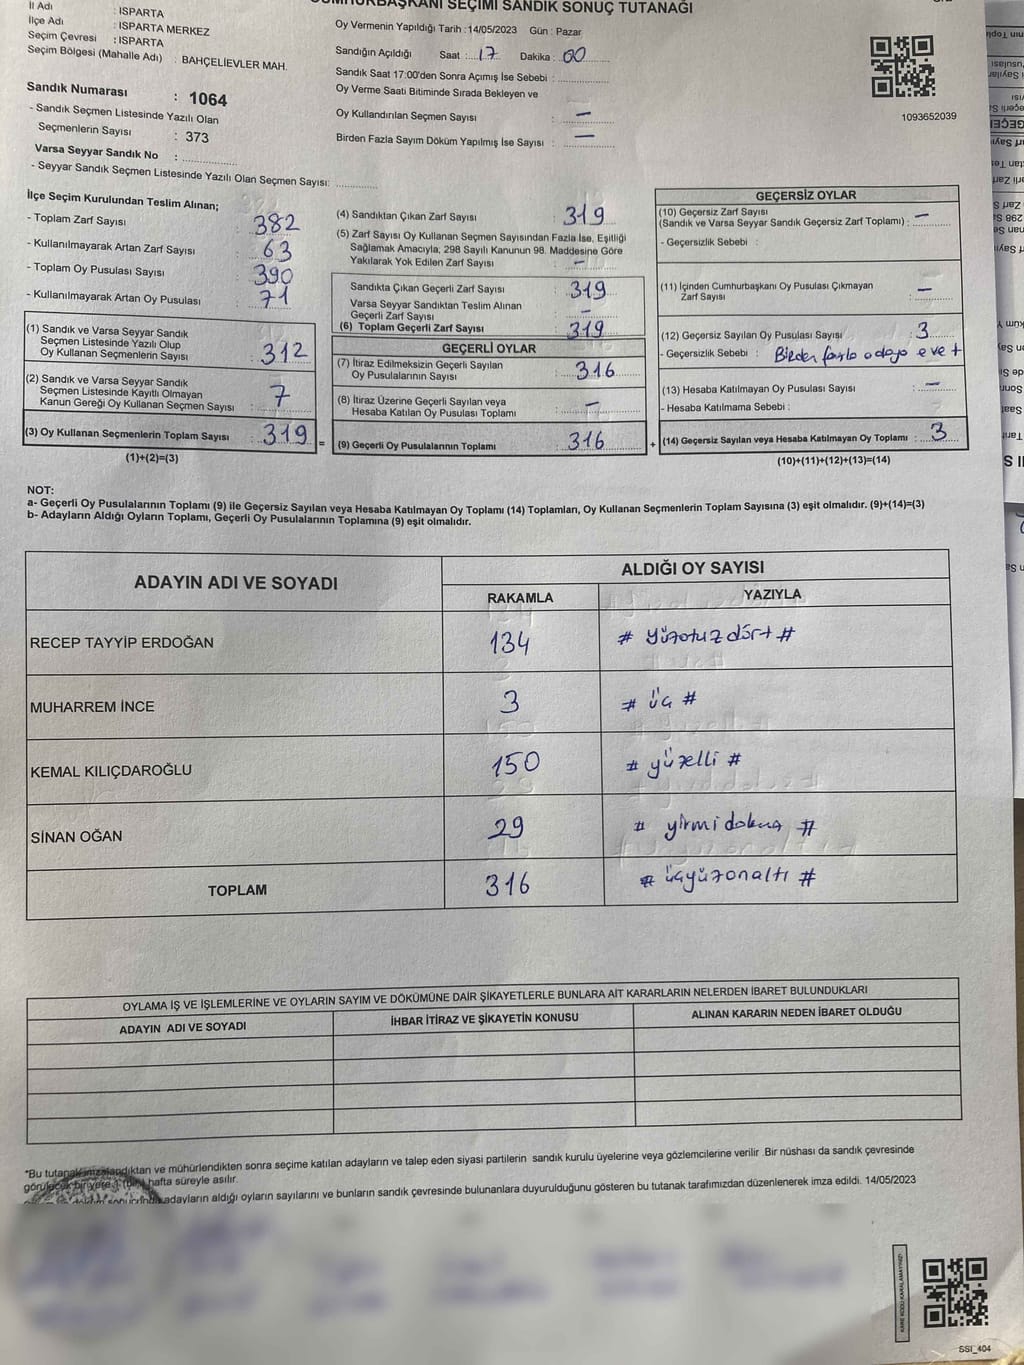 İl Adı : ISPARTA
İlçe Adı : ISPARTA MERKEZ
Seçim Çevresi : ISPARTA
Seçim Bölgesi (Mahalle Adı) : BAHÇELİEVLER MAH.
Sandık Numarası : 1064
- Sandık Seçmen Listesinde Yazılı Olan
Seçmenlerin Sayısı : 373
Varsa Seyyar Sandık No :
- Seyyar Sandık Seçmen Listesinde Yazılı Olan Seçmen Sayısı:
SEÇİMİ SANDIK SONUÇ TUTANAĞI
Oy Vermenin Yapıldığı Tarih :14/05/2023 Gün : Pazar
Sandığın Açıldığı Saat : 17 Dakika : 00
Sandık Saat 17:00'den Sonra Açımış İse Sebebi :
Oy Verme Saati Bitiminde Sırada Bekleyen ve
Oy Kullandırılan Seçmen Sayısı : —
Birden Fazla Sayım Döküm Yapılmış İse Sayısı : —
1093652039
İlçe Seçim Kurulundan Teslim Alınan;
- Toplam Zarf Sayısı : 382
- Kullanılmayarak Artan Zarf Sayısı : 63
- Toplam Oy Pusulası Sayısı : 390
- Kullanılmayarak Artan Oy Pusulası : 71
(1) Sandık ve Varsa Seyyar Sandık
Seçmen Listesinde Yazılı Olup
Oy Kullanan Seçmenlerin Sayısı : 312
(2) Sandık ve Varsa Seyyar Sandık
Seçmen Listesinde Kayıtlı Olmayan
Kanun Gereği Oy Kullanan Seçmen Sayısı : 7
(3) Oy Kullanan Seçmenlerin Toplam Sayısı : 319
(1)+(2)=(3)
=
(4) Sandıktan Çıkan Zarf Sayısı : 319
(5) Zarf Sayısı Oy Kullanan Seçmen Sayısından Fazla İse, Eşitliği
Sağlamak Amacıyla, 298 Sayılı Kanunun 98. Maddesine Göre
Yakılarak Yok Edilen Zarf Sayısı : —
Sandıkta Çıkan Geçerli Zarf Sayısı : 319
Varsa Seyyar Sandıktan Teslim Alınan
Geçerli Zarf Sayısı : —
(6) Toplam Geçerli Zarf Sayısı : 319
GEÇERLİ OYLAR
(7) İtiraz Edilmeksizin Geçerli Sayılan
Oy Pusulalarının Sayısı : 316
(8) İtiraz Üzerine Geçerli Sayılan veya
Hesaba Katılan Oy Pusulası Toplamı : —
(9) Geçerli Oy Pusulalarının Toplamı : 316
+
GEÇERSİZ OYLAR
(10) Geçersiz Zarf Sayısı
(Sandık ve Varsa Seyyar Sandık Geçersiz Zarf Toplamı) : —
- Geçersizlik Sebebi :
(11) İçinden Cumhurbaşkanı Oy Pusulası Çıkmayan
Zarf Sayısı : —
(12) Geçersiz Sayılan Oy Pusulası Sayısı : 3
- Geçersizlik Sebebi : Birden fazla adaya evet
(13) Hesaba Katılmayan Oy Pusulası Sayısı : —
- Hesaba Katılmama Sebebi :
(14) Geçersiz Sayılan veya Hesaba Katılmayan Oy Toplamı : 3
(10)+(11)+(12)+(13)=(14)
NOT:
a- Geçerli Oy Pusulalarının Toplamı (9) ile Geçersiz Sayılan veya Hesaba Katılmayan Oy Toplamı (14) Toplamları, Oy Kullanan Seçmenlerin Toplam Sayısına (3) eşit olmalıdır. (9)+(14)=(3)
b- Adayların Aldığı Oyların Toplamı, Geçerli Oy Pusulalarının Toplamına (9) eşit olmalıdır.
ADAYIN ADI VE SOYADI
ALDIĞI OY SAYISI
RAKAMLA YAZIYLA
RECEP TAYYİP ERDOĞAN 134 # yüzotuzdört #
MUHARREM İNCE 3 # üç #
KEMAL KILIÇDAROĞLU 150 # yüzelli #
SİNAN OĞAN 29 # yirmidokuz #
TOPLAM 316 # üçyüzonaltı #
OYLAMA İŞ VE İŞLEMLERİNE VE OYLARIN SAYIM VE DÖKÜMÜNE DAİR ŞİKAYETLERLE BUNLARA AİT KARARLARIN NELERDEN İBARET BULUNDUKLARI
ADAYIN ADI VE SOYADI İHBAR İTİRAZ VE ŞİKAYETİN KONUSU ALINAN KARARIN NEDEN İBARET OLDUĞU
*Bu tutanak imzalandıktan ve mühürlendikten sonra seçime katılan adayların ve talep eden siyasi partilerin sandık kurulu üyelerine veya gözlemcilerine verilir .Bir nüshası da sandık çevresinde
görülecek bir yere 1 (bir) hafta süreyle asılır.
adayların aldığı oyların sayılarını ve bunların sandık çevresinde bulunanlara duyurulduğunu gösteren bu tutanak tarafımızdan düzenlenerek imza edildi. 14/05/2023
KARE KODU KARALAMAYINIZ!
SSI_404